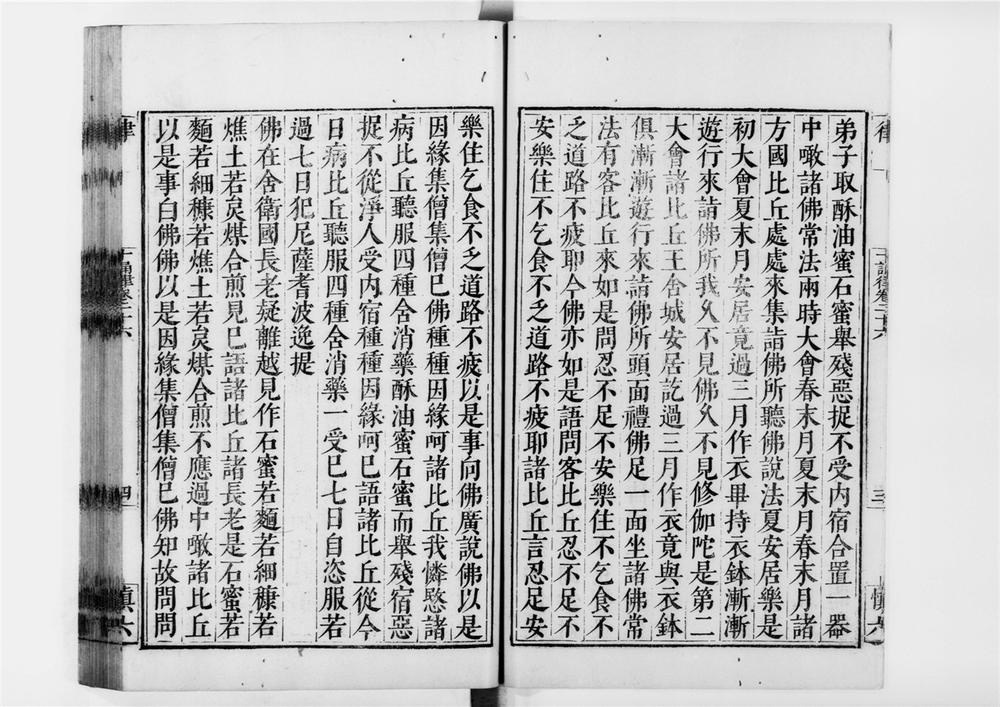 弟子取酥油蜜石蜜舉殘惡捉不受内宿合置一器
中噉諸佛常法兩時大會春末月夏末月春末月諸
方國比丘處處來集詣佛所聽佛說法夏安居樂是
初大會夏末月安居竟過三月作衣畢持衣鉢漸漸
遊行來詣佛所我久不見佛久不見修伽陀是第二
大會諸比丘王舍城安居訖過三月作衣竟與衣鉢
俱漸漸遊行來詣佛所頭面禮佛足一面坐諸佛常
法有客比丘來如是問忍不足不安樂住不乞食不
乏道路不疲耶今佛亦如是語問客比丘忍不足不
安樂住不乞食不乏道路不疲耶諸比丘言忍足安
樂住乞食不乏道路不疲以是事向佛廣說佛以是
因緣集僧集僧已佛種種因緣呵諸比丘我憐愍諸
病比丘聽服四種舍消藥酥油蜜石蜜而舉殘宿惡
捉不從淨人受内宿種種因緣呵已語諸比丘從今
日病比丘聽服四種舍消藥一受已七日自恣服若
過七日犯尼薩耆波逸提
佛在舍衛國長老疑離越見作石蜜若麵若細糠若
燋土若炱煤合煎見已語諸比丘諸長老是石蜜若
麵若細糠若燋土若炱煤合煎不應過中噉諸比丘
以是事白佛佛以是因緣集僧集僧已佛知故問問
十誦律卷二十六
三
慎六
律
十誦律卷二十六
四
慎六